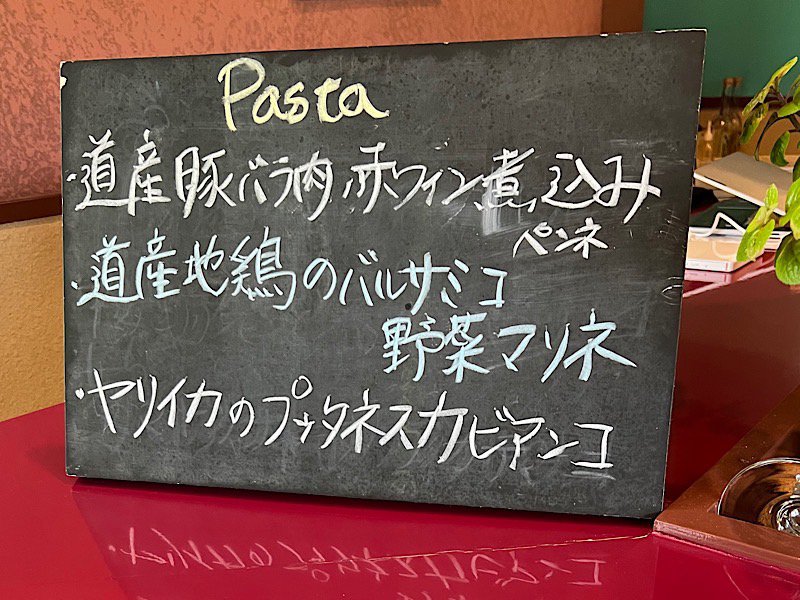 Pasta
・道産豚バラ肉赤ワイン煮込み
ペンネ
・道産地鶏のバルサミコ
野菜マリネ
・ヤリイカのプッタネスカビアンコ